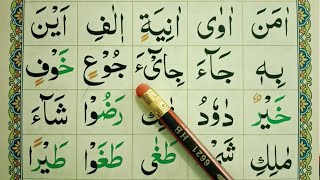 اٰمَنَ اٰوٰى اٰنِيَةٍ اِلٰفِ اَيْنَ
بِهٖ جَآءَ جِاىْٓءَ جُوْعٍ خَوْفٍ
خَيْرٌ دَاوٗدُ رَضُوْا شَآءَ
مٰلِكِ طَغٰى طَغَوْا طَيْرًا
6621 HB